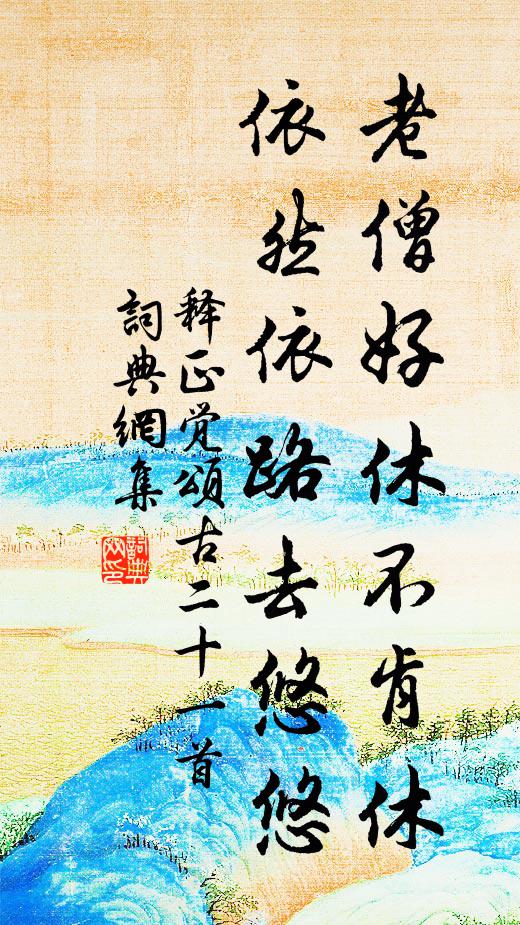 老僧好休不肯休
依然依路去悠悠
释正觉頌古二十一首
詞典網集
詞典網印